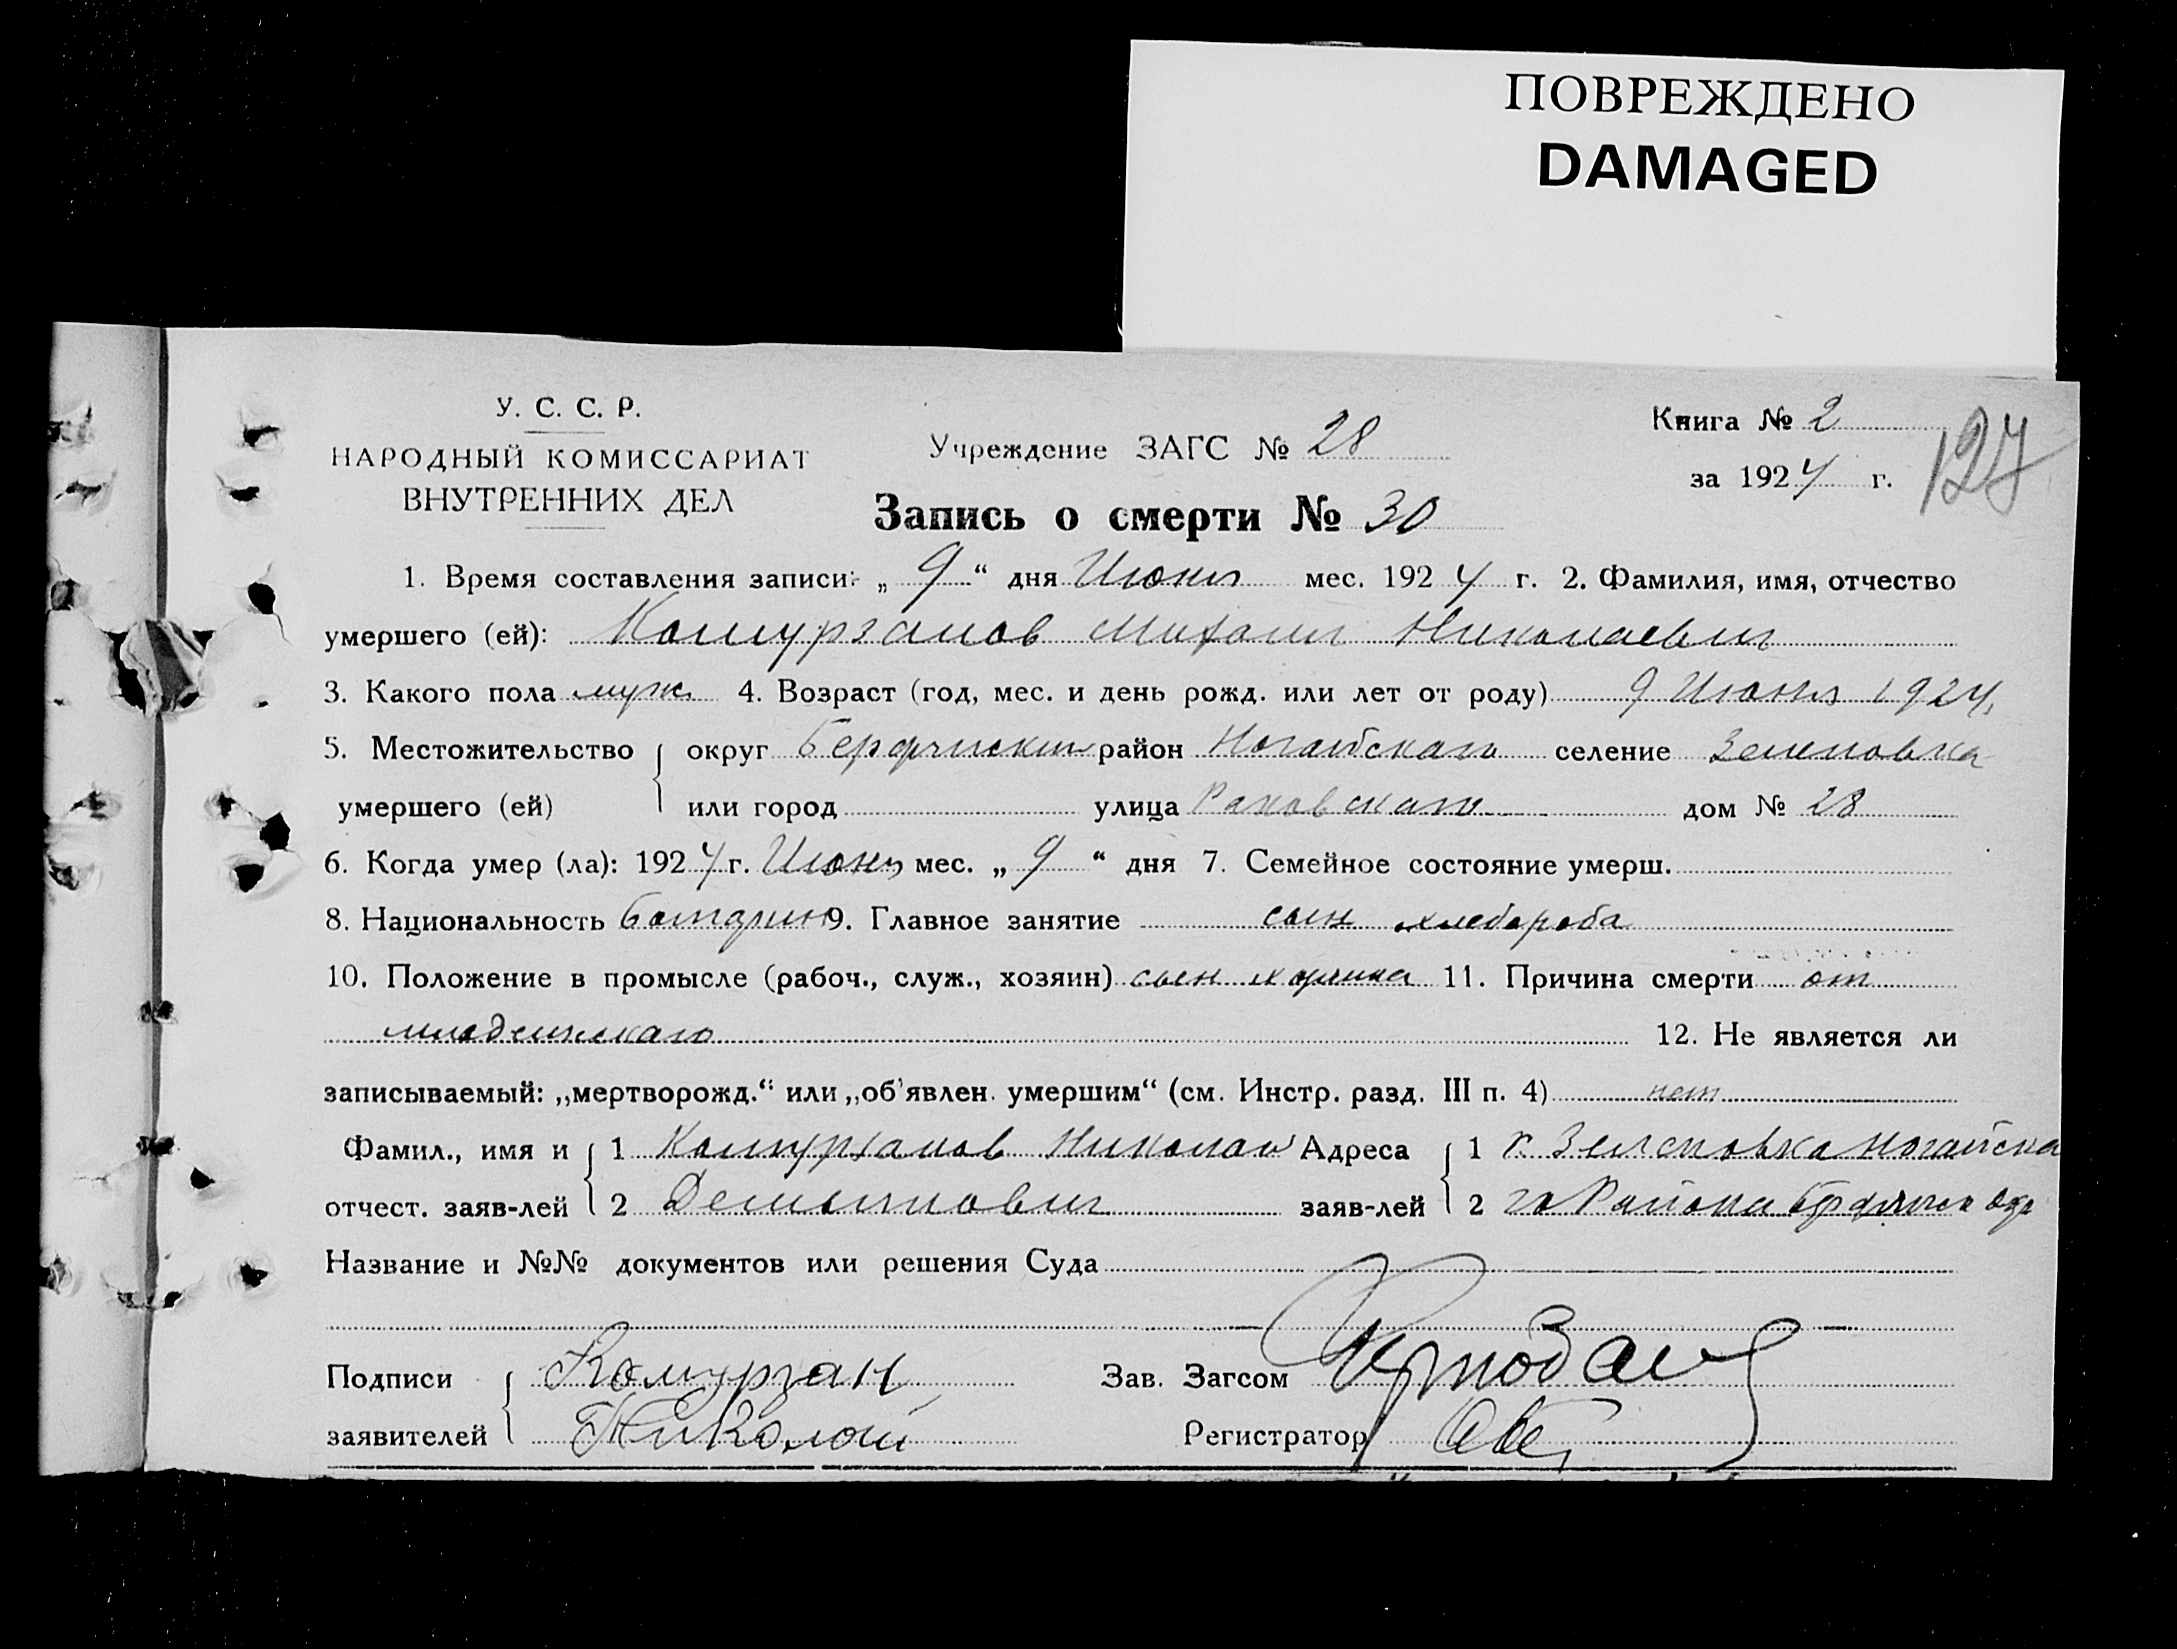 ПОВРЕЖДЕНО
DAMAGED
У. С. С. Р.
НАРОДНЫЙ КОМИССАРИАТ
ВНУТРЕННИХ ДЕЛ
Учреждение ЗАГС № 28
Книга № 2
за 1924 г.
127
Запись о смерти № 30
1. Время составления записи: „ 9 “ дня Июня мес. 1924 г. 2. Фамилия, имя, отчество
умершего (ей): Комурзанов Михаил Николаевич
3. Какого пола муж. 4. Возраст (год, мес. и день рожд. или лет от роду) 9 Июня 1924.
5. Местожительство округ Бердянский район Ногайскаго селение Зеленовка
умершего (ей) или город улица Раковскаго дом № 28
6. Когда умер (ла): 1924 г. Июня мес. „ 9 “ дня 7. Семейное состояние умерш.
8. Национальность 9. Главное занятие сын хлебороба
10. Положение в промысле (рабоч., служ., хозяин) сын хозяина 11. Причина смерти от
младенческаго 12. Не является ли
записываемый: „мертворожд.“ или „об'явлен. умершим“ (см. Инстр. разд. III п. 4) нет
Фамил., имя и 1 Комурзанов Николай Адреса 1 с. Зеленовка Ногайска
отчест. заяв-лей 2 Демьянович заяв-лей 2 го Района Бердянск окр
Название и №№ документов или решения Суда
Подписи Комурзан Зав. Загсом
заявителей Николай Регистратор